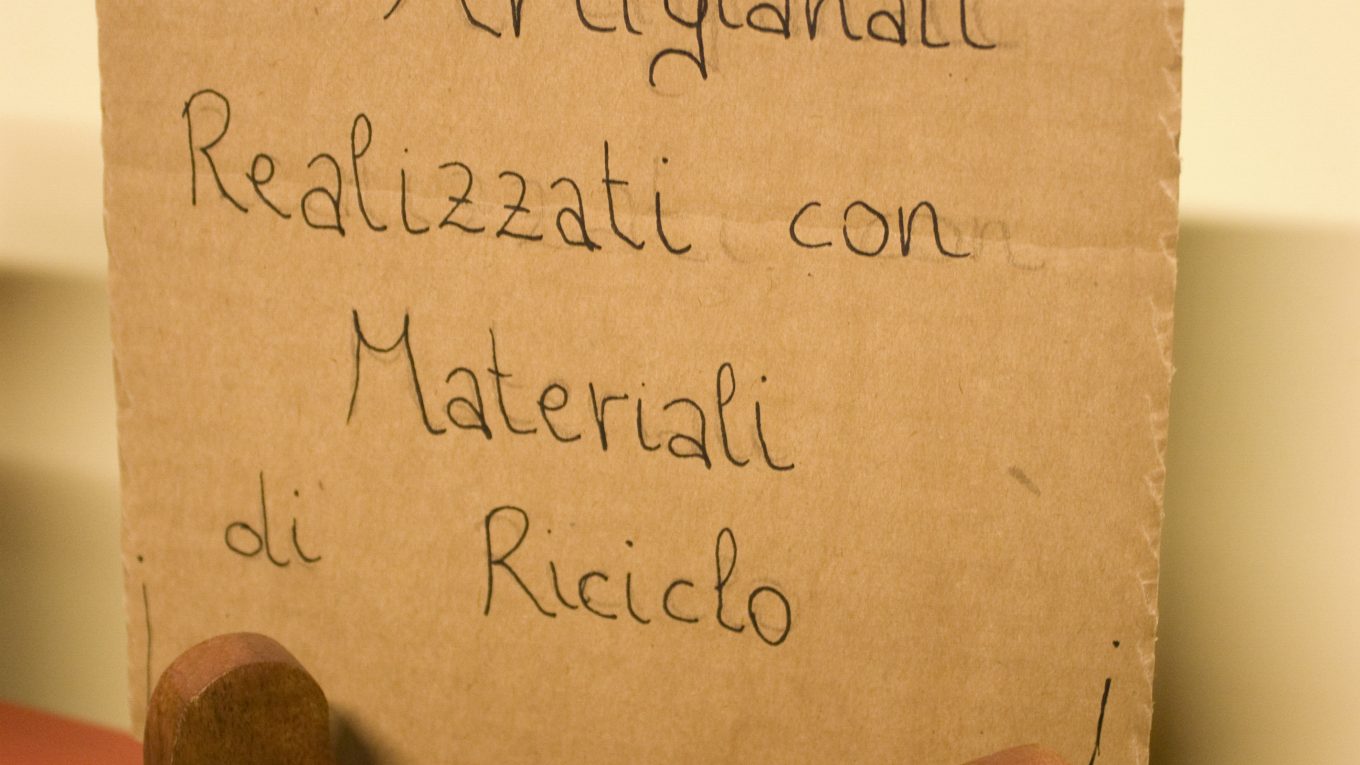 Artigianali
Realizzati con
Materiali
di Riciclo